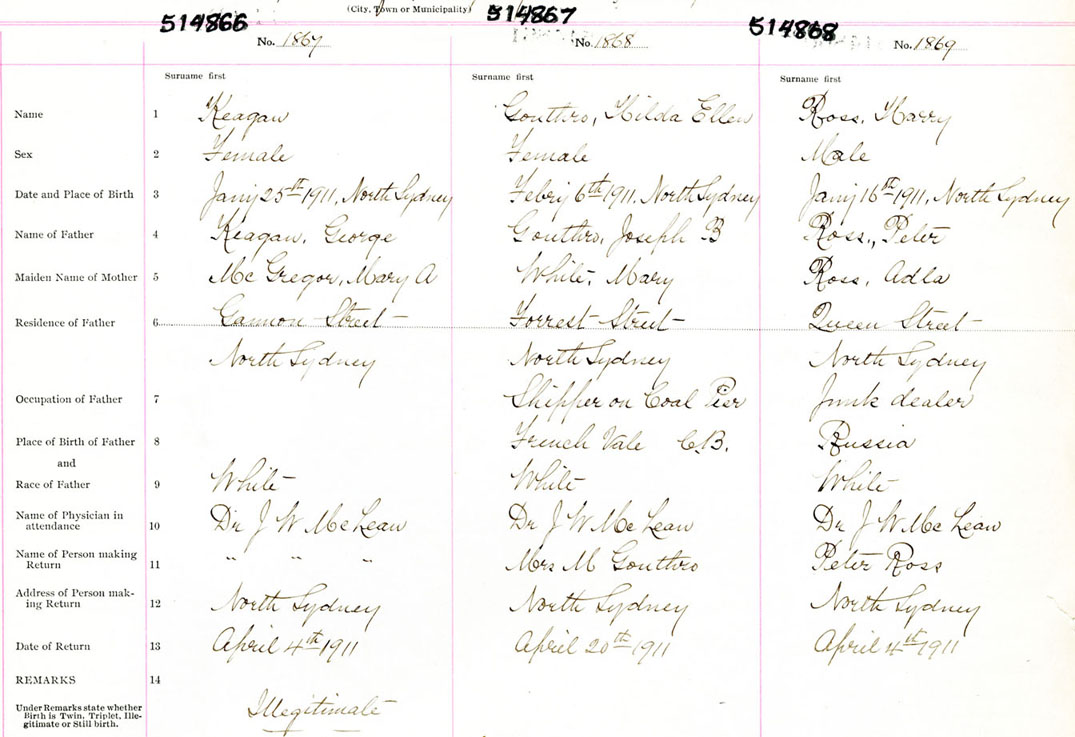 (City, Town or Municipality)
514866 514867 514868
No. 1867 No. 1868 No. 1869
Surname first Surname first Surname first
Name 1 Keagan Gouthro, Hilda Ellen Ross, Harry
Sex 2 Female Female Male
Date and Place of Birth 3 Jany 25th 1911, North Sydney Febry 6th 1911, North Sydney Jany 16th 1911, North Sydney
Name of Father 4 Keagan, George Gouthro, Joseph B Ross, Peter
Maiden Name of Mother 5 Mc Gregor, Mary A White, Mary Ross, Adla
Residence of Father 6 Gannon Street Forrest Street Queen Street
North Sydney North Sydney North Sydney
Occupation of Father 7 Shipper on Coal Pier Junk dealer
Place of Birth of Father 8 French Vale C.B. Russia
and
Race of Father 9 White White White
Name of Physician in
attendance 10 Dr J W Mc Lean Dr J W Mc Lean Dr J W Mc Lean
Name of Person making
Return 11 " " " Mrs M Gouthro Peter Ross
Address of Person mak-
ing Return 12 North Sydney North Sydney North Sydney
Date of Return 13 April 4th 1911 April 20th 1911 April 4th 1911
REMARKS 14
Under Remarks state whether
Birth is Twin, Triplet, Ille-
gitimate or Still birth.
Illegitimate